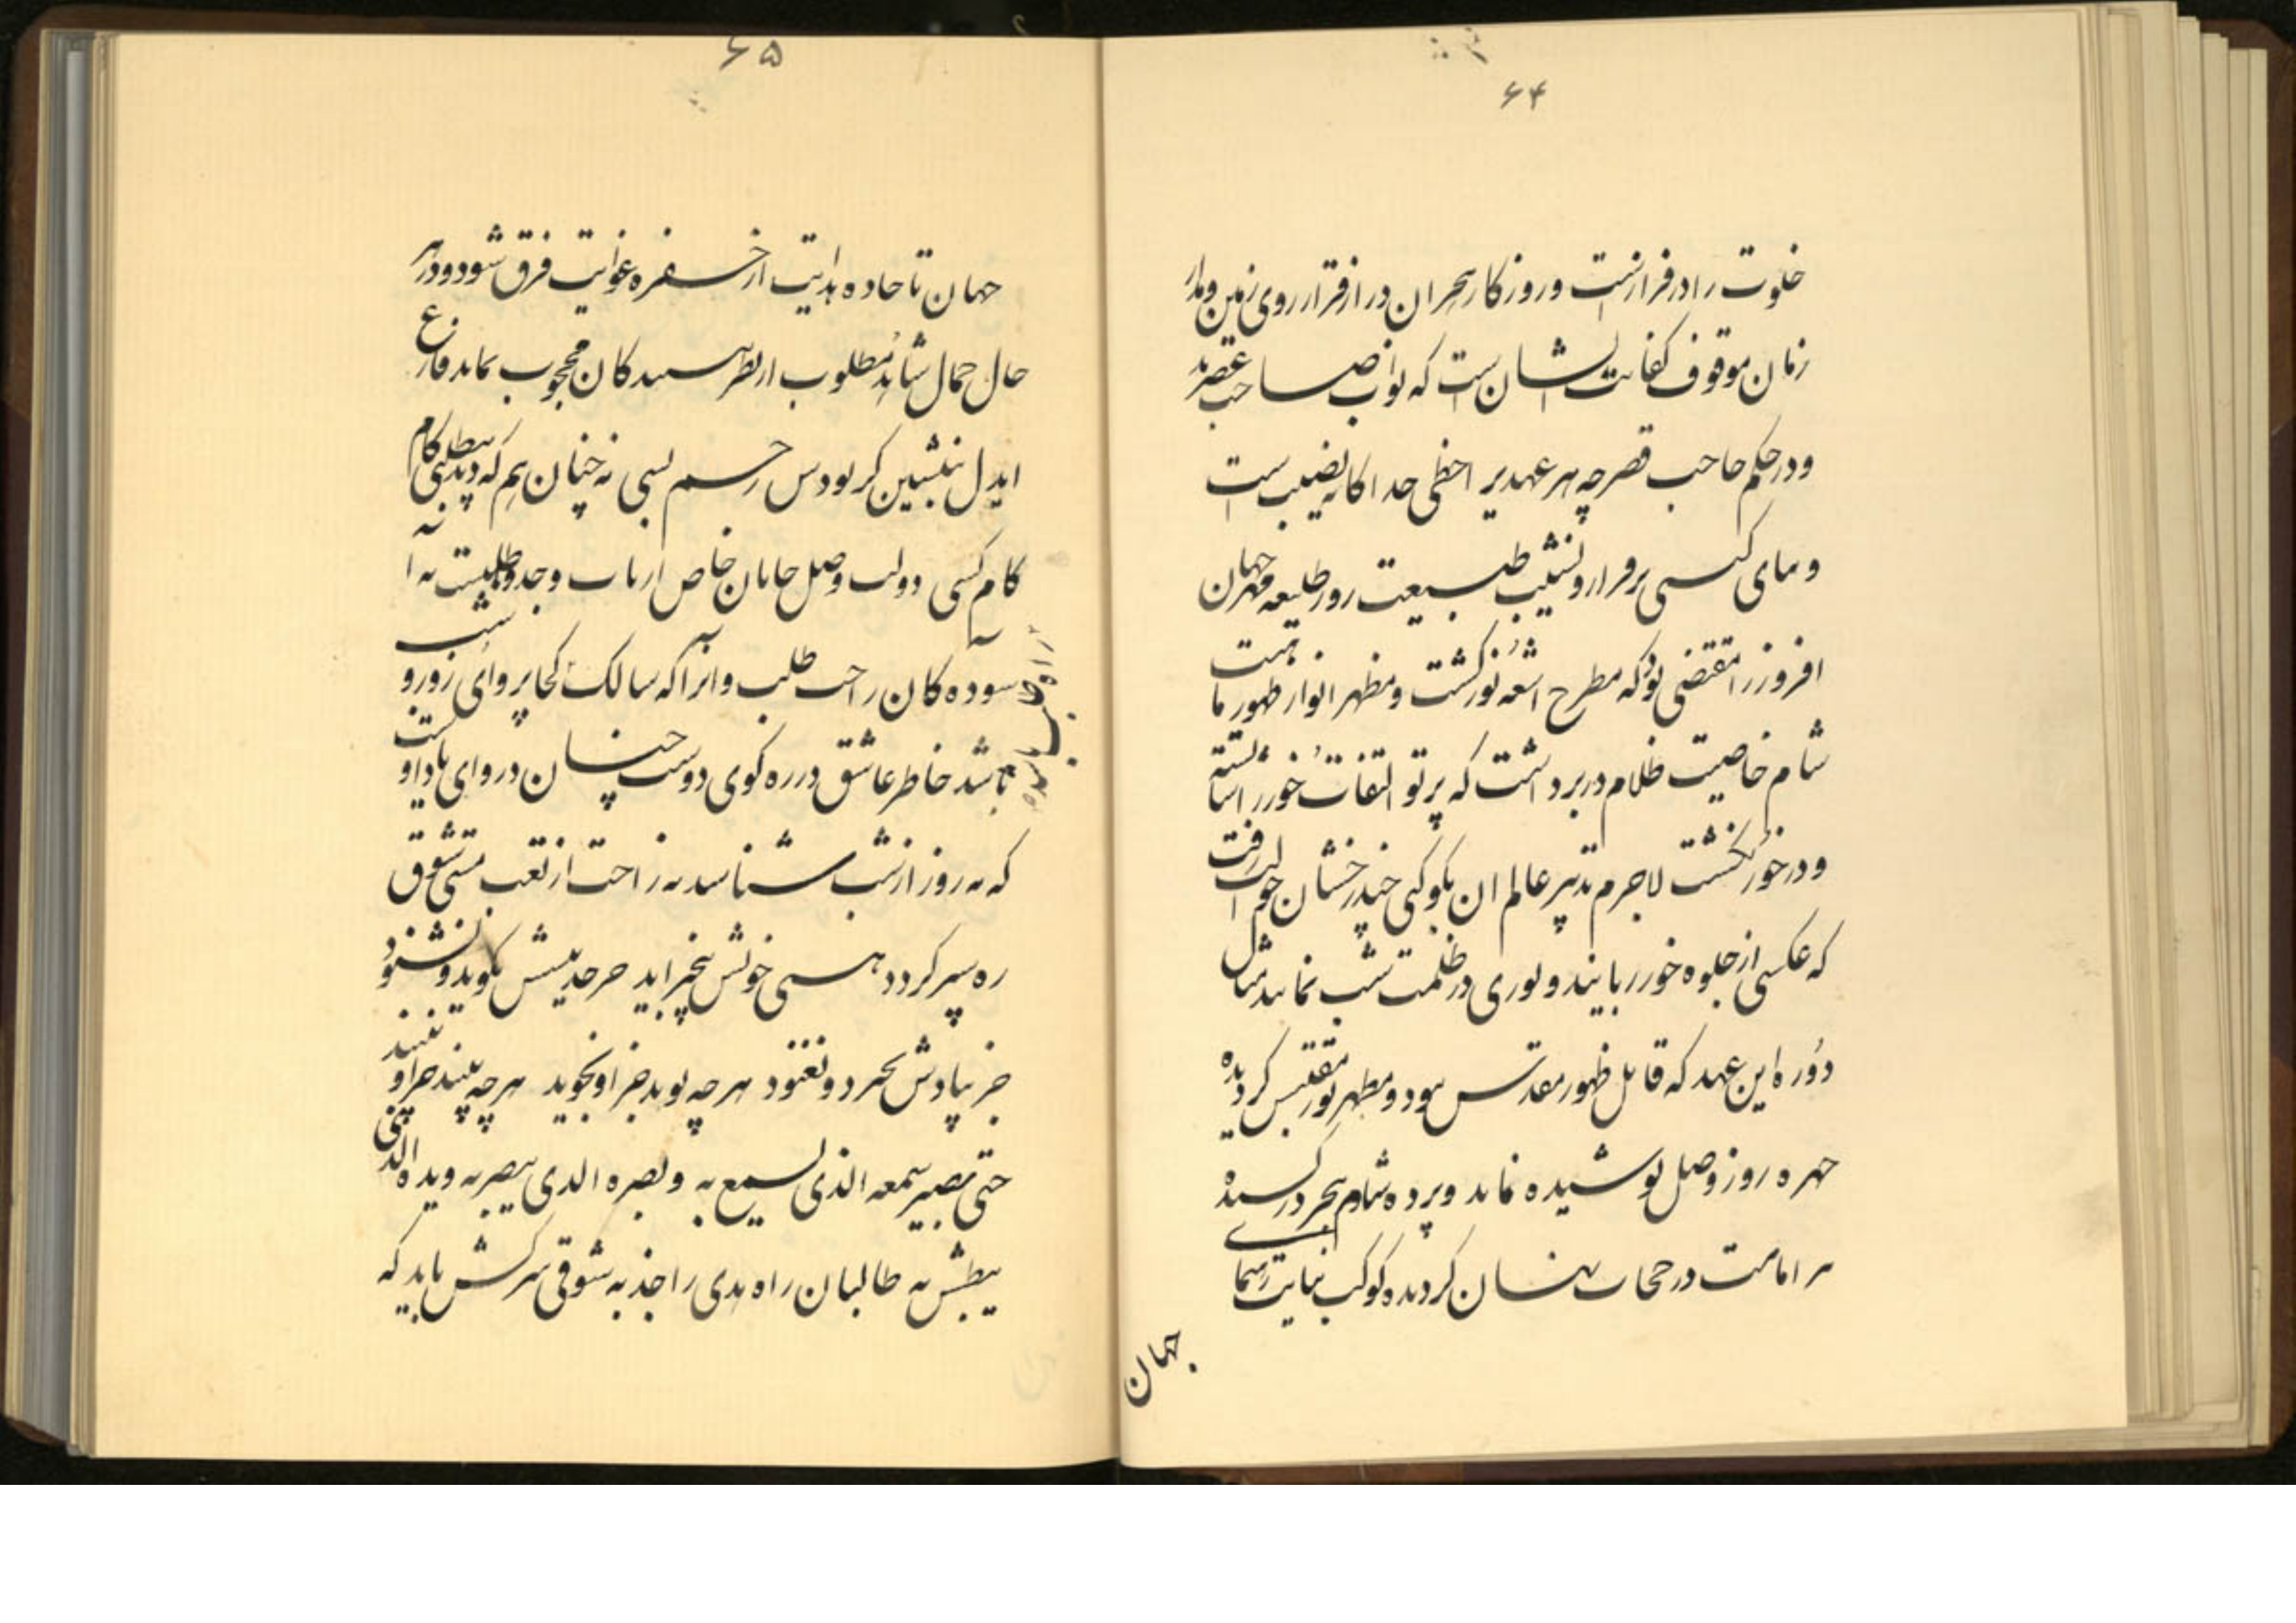 ۶۴
خلوت را در فرازنست و روزکار هجران در از قرار روی زمین و مدار
زمان موقوف کفایت ایشان است که نواب صاحب عصرند
و در حکم حاجب قصر چه هر عهدیرا حظی جداکانه نصیب است
و سمای کسی بر فراز و نشیب طبیعت روز طلیعه مهر جهان
افروز را مقتضی بود که مطرح اشعه نور کشت و مظهر انوار ظهور ما هیت
شام خاصیت ظلام در برداشت که پرتو التفات خور را شایسته
و در خور نکشت لاجرم تدبیر عالم ان بکوکبی چند رخشان حوالت رفت
که عکسی از جلوه خور ربایند و نوری در ظلمت شب نمایند مثال
دوره این عهد که قابل ظهور مقدس بود و مظهر نور مقتبس کردیده
چهره روز وصل پوشیده نماند و پرده شام هجر در رسیده
امامت در حجاب نهان کردیده کوکب نیابت رهنمای
جهان
۶۵
جهان تا جاده هدایت از حفره غوایت فرق شود و در هر
حال جمال شاهد مطلوب از نظر بینندکان محجوب نماند فارغ
ایدل بنشین کر بودس رحسم بسی نه چنان هم که دید بیطلبی کام
کام کسی دولت وصل جانان خاص ارباب وجد و طلبست نه ا
سوده کان راحت طلب و انرا که سالک کجا پروای روز و شب
باشد خاطر عاشق در ره کوی دوست چنان دروای یاد اوست
که نه روز از شب شناسد نه راحت از تعب مستی شوق
ره سپر کردد هستی خویش بیخبر اید جز حدیثش نکوید و نشنود
جز بیادش نخرد و نغنود هر چه پوید جز او نجوید هر چه بیند جز او نبیند
حتی یصیر سمعه الذی یسمع به و بصره الذی یبصر به و یده التی
یبطش به طالبان راه هدی را جذبه شوقی سرکش باید که